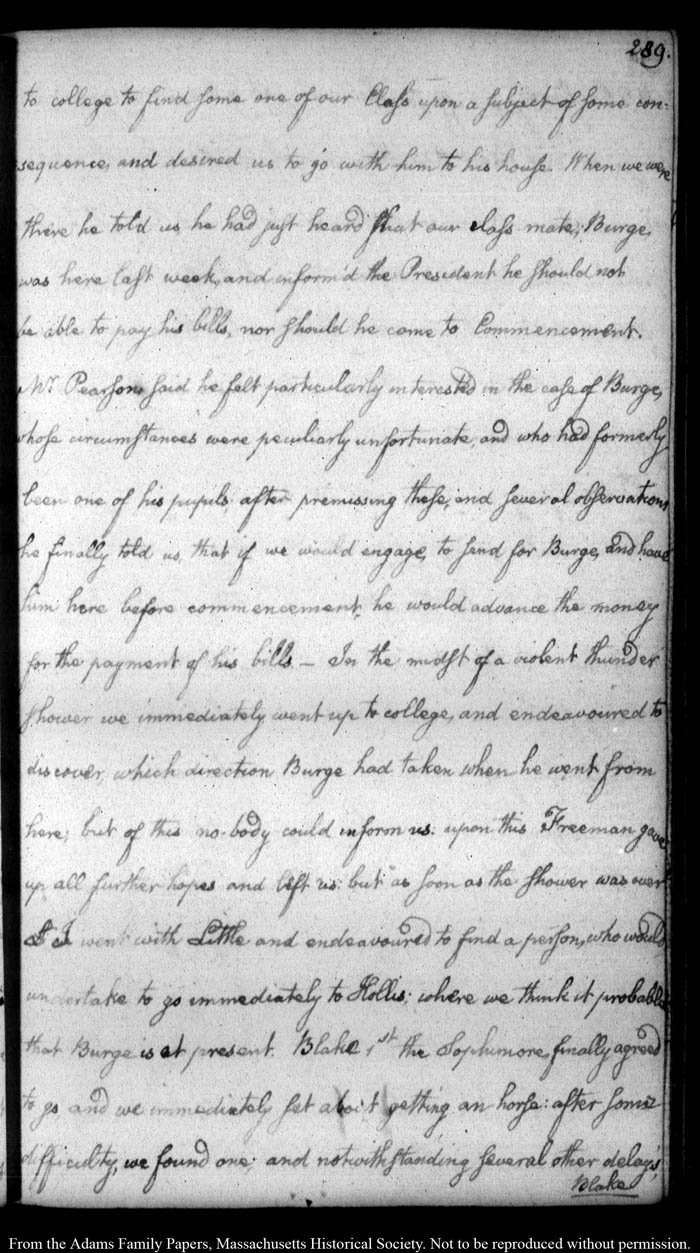 289.
to college to find some one of our Class upon a subject of some con-
sequence, and desired us to go with him to his house. When we were
there he told us, he had just heard that our class mate, Burge,
was here last week, and inform'd the President he should not
be able to pay his bills, nor should he come to Commencement.
Mr. Pearson said he felt particularly interested in the case of Burge,
whose circumstances were peculiarly unfortunate, and who had formerly
been one of his pupils; after premissing these, and several observations
he finally told us, that if we would engage, to send for Burge, and have
him here before commencement, he would advance the money
for the payment of his bills — In the midst of a violent thunder
shower we immediately went up to college, and endeavoured to
discover, which direction Burge had taken when he went from
here; but of this no-body could inform us: upon this Freeman gave
up all further hopes and left us: but as soon as the shower was over
I went with Little and endeavoured to find a person, who would
undertake to go immediately to Hollis; where we think it probable
that Burge is at present. Blake 1st the Sophimore, finally agreed
to go, and we immediately set about getting an horse: after some
difficulty, we found one; and notwithstanding several other delays,
Blake
From the Adams Family Papers, Massachusetts Historical Society. Not to be reproduced without permission.